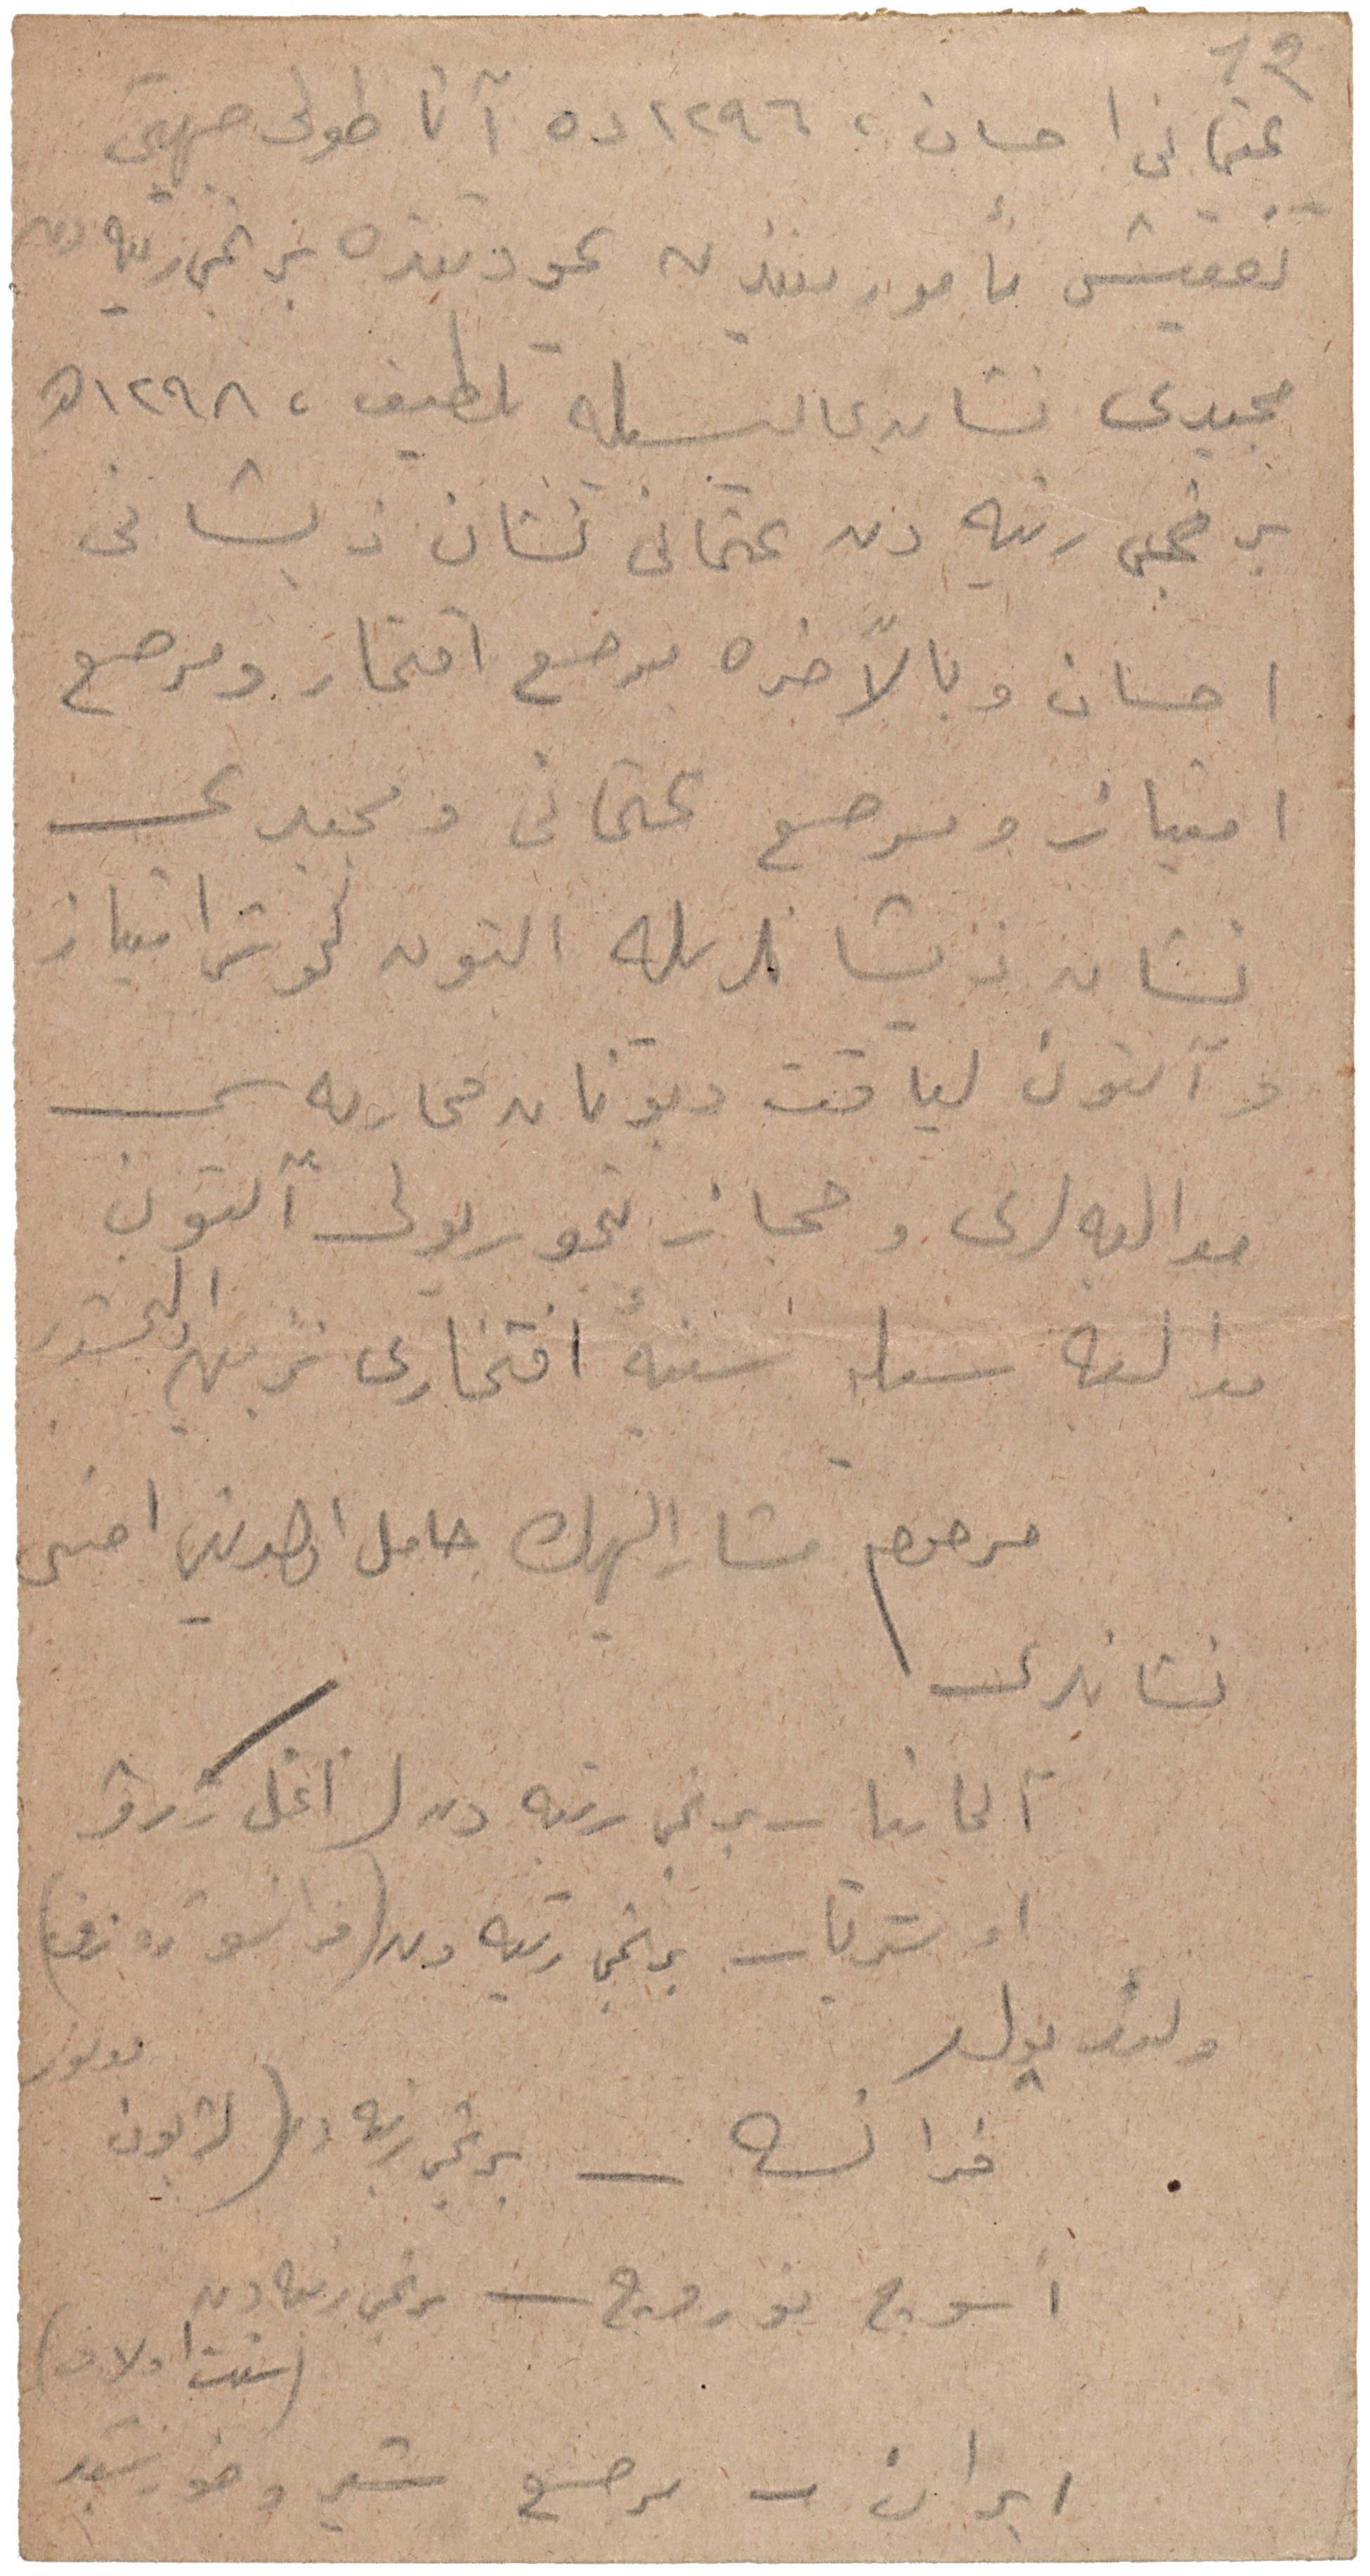 12
عثمانی احسان ، ١٢٩٦ ده آناطولی جهتی
تفتیش مأموریتندن عودتنده برنجی رتبه دن
مجیدی نشان عالیسیله تلطیف ، ١٢٩٨ ده
برنجی رتبه دن عثمانی نشان ذیشانی
احسان وبالآخره مرصع افتخار ومرصع
امتیاز ومرصع عثمانی ومجیدی
نشان ذیشانلریله التون کموش امتیاز
وآلتون لیاقت ویونان محاربه سی
مدالیه لری وحجاز تیمور یولی آلتون
مدالیه سیله سینهٔ افتخاری تزیین ایلمشدر
مرحوم مشار الیهك حامل اولدیغی اجنبی
نشانلری
آلمانیا ـ برنجی رتبه دن (اغل روژ
اوستریا ـ برنجی رتبه دن (فرانسوا ژوزف)
ولئوپولد
فرانسه ـ برنجی رتبه دن (لژیون
دونور
اسوج نوروج ـ برنجی رتبه دن
(سنت اولاف)
ایران ـ مرصع شیر وخورشید